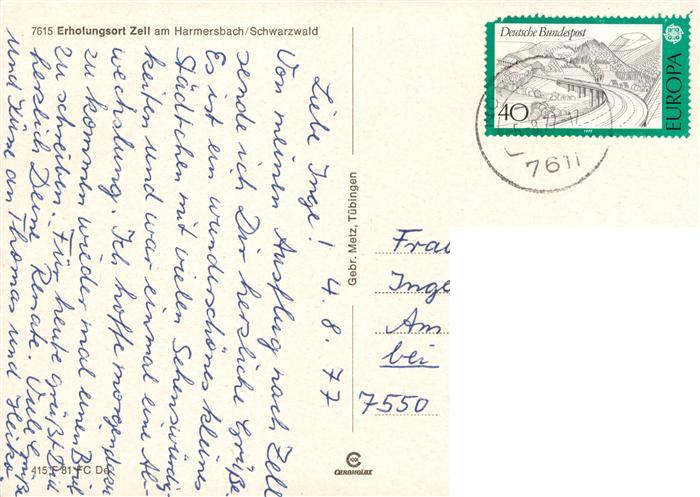 7615 Erholungsort Zell am Harmersbach/Schwarzwald
Liebe Inge! 4. 8. 77
Von meinem Ausflug nach Zell
sende ich Dir herzliche Grüße.
Es ist ein wunderschönes kleines
Städtchen mit vielen Sehenswürdig-
keiten und war einmal eine Ab-
wechslung. Ich hoffe morgen dazu
zu kommen wieder mal einen Brief
zu schreiben. Für heute grüßt Dich
herzlich Deine Renate. Viele Grüße
und Küsse an Thomas und Heiko.
415 F 81 FC De
Gebr. Metz, Tübingen
CHROMOLUX
Deutsche Bundespost
40
EUROPA
1977
7611
Frau
Inge
Am
bei
7550